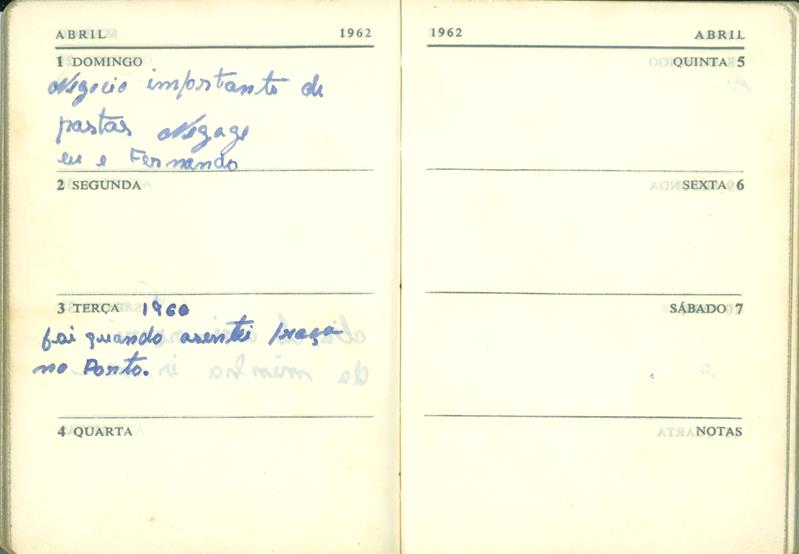 ABRIL 1962
1 DOMINGO
Negocio importante de
pastas Negage
eu e Fernando
2 SEGUNDA
3 TERÇA 1960
foi quando asentei praça
no Porto.
4 QUARTA
1962 ABRIL
QUINTA 5
SEXTA 6
SÁBADO 7
NOTAS